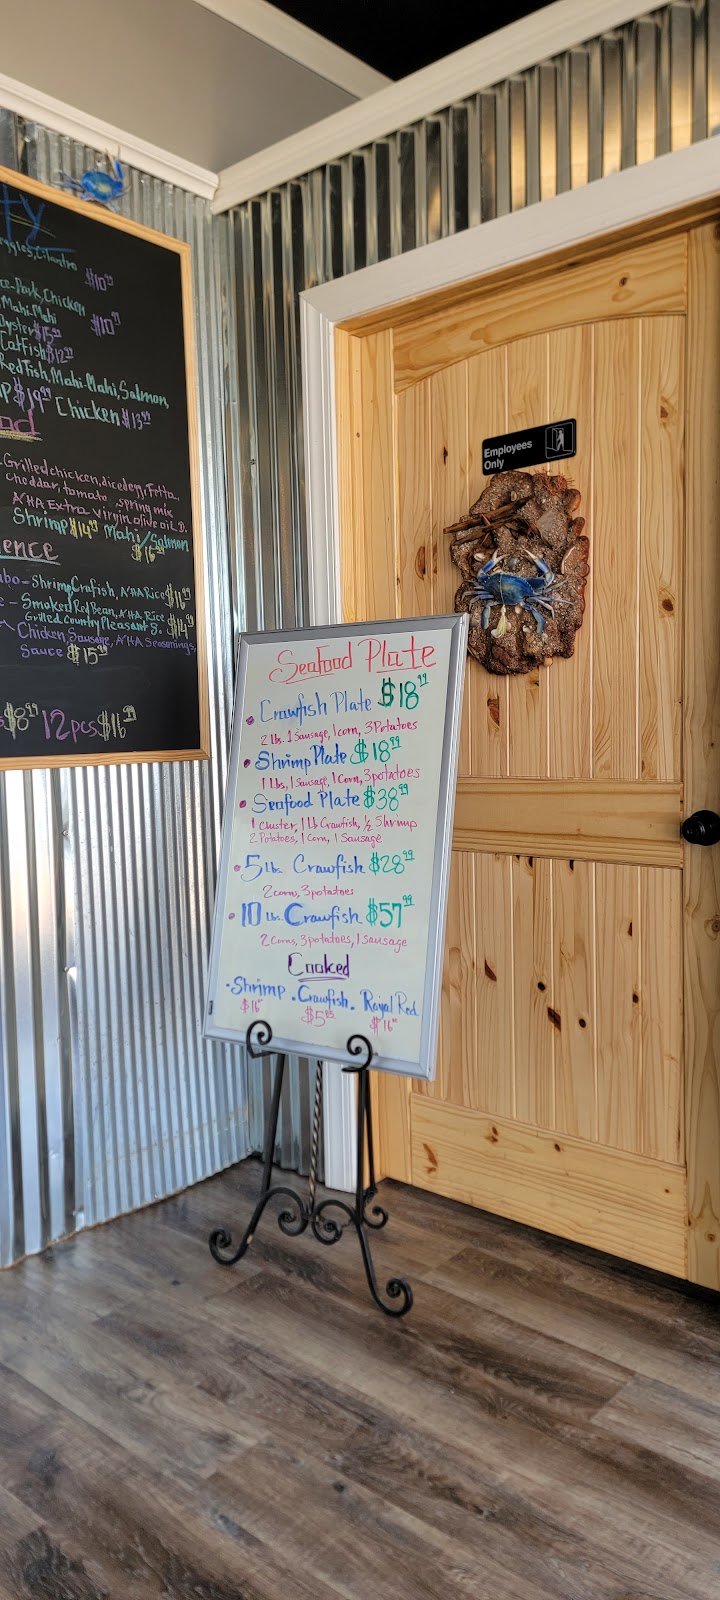 $10
Pork, Chicken
Mahi-Mahi $10
Oyster $15
Catfish $12
RedFish, Mahi-Mahi, Salmon,
$19 Chicken $13
Grilled chicken, diced egg, Fetta,
cheddar, tomato, spring mix
A'HA Extra Virgin olive oil D.
Shrimp $14 Mahi/Salmon
$16
ence
bo - Shrimp Crafish, A'HA Rice $16
- Smoked Red Bean, A'HA Rice
Grilled Country Pleasant S. $14
Chicken, Sausage, A'HA Seasonings,
Sauce $15
$8 12pcs $16
Employees
Only
Seafood Plate
Crawfish Plate $18.99
2 Lbs. 1 Sausage, 1 corn, 3 Potatoes
Shrimp Plate $18.99
1 Lbs, 1 Sausage, 1 Corn, 3 potatoes
Seafood Plate $38.99
1 Cluster, 1 Lb Crawfish, ½ Shrimp
2 Potatoes, 1 Corn, 1 Sausage
5 Lbs. Crawfish $28.99
2 corns, 3 potatoes
10 Lbs. Crawfish $57.99
2 Corns, 3 potatoes, 1 sausage
Cooked
Shrimp . Crawfish . Royal Red
$16 $5 $16